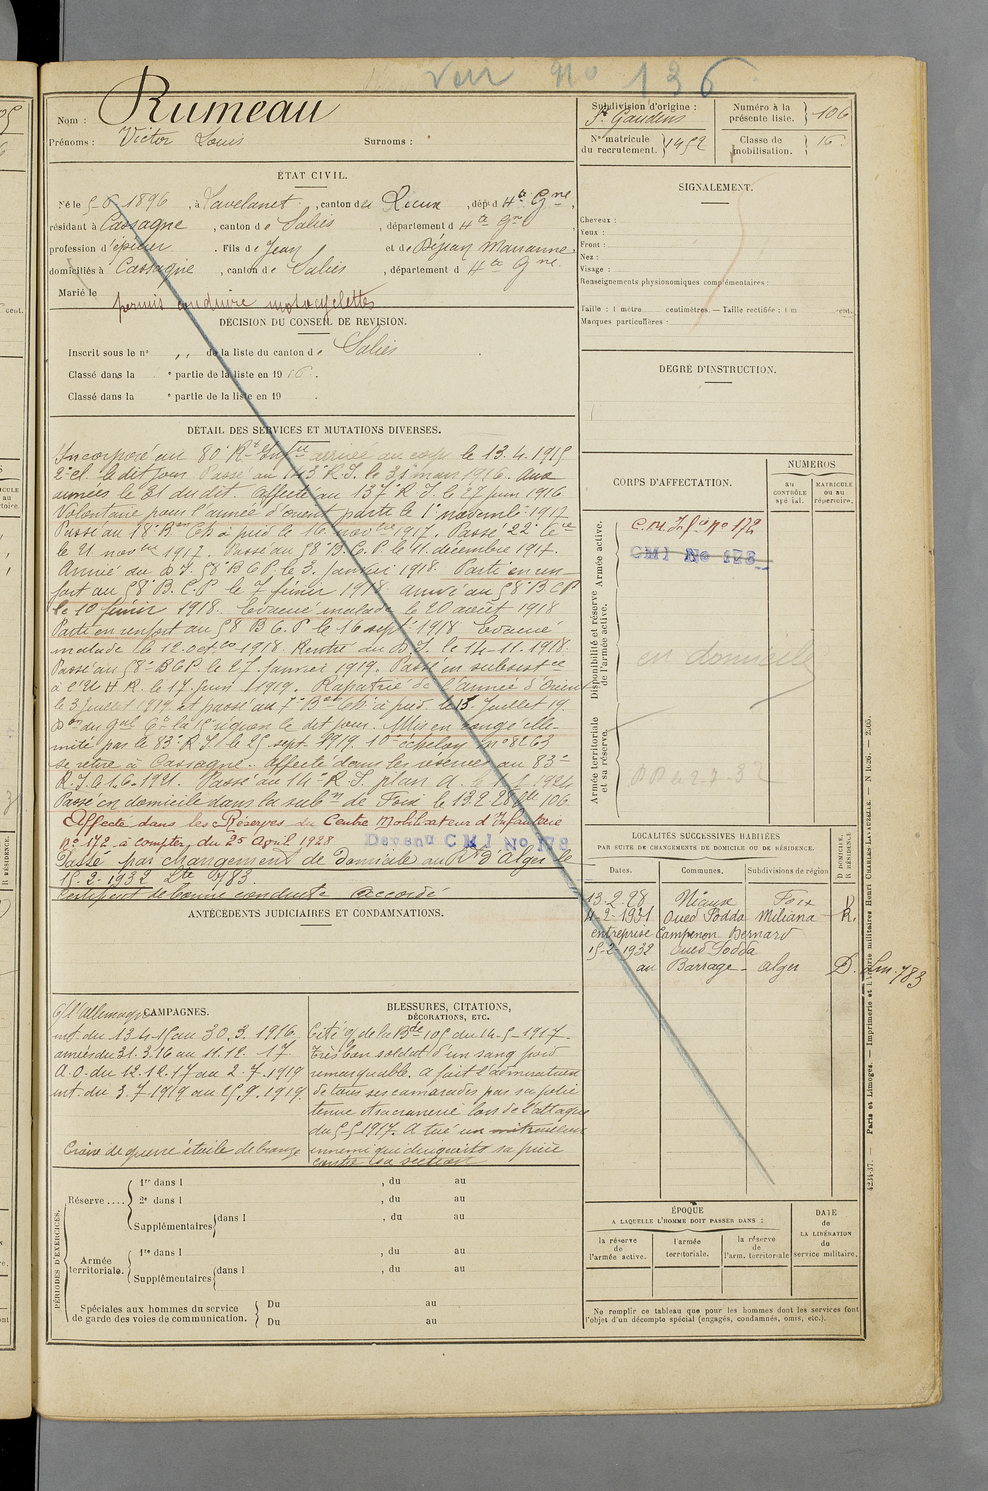 Voir no 136
Nom : Rumeau
Prénoms : Victor Louis Surnoms :
Subdivision d'origine : St Gaudens
Numéro à la présente liste. 106
No matricule du recrutement. 1452
Classe de mobilisation. 16
ÉTAT CIVIL.
Né le 5-6 1896, à Lavelanet, canton de Rieux, dép. d Hte Gne,
résidant à Cassagne, canton de Salies, département d Hte Gne
profession d'épicier. Fils de Jean et de Déjean Marianne
domiciliés à Cassagne, canton de Salies, département d Hte Gne.
Marié le
permis conduire motocyclettes
DÉCISION DU CONSEIL DE REVISION.
Inscrit sous le no ,, de la liste du canton de Salies
Classé dans la e partie de la liste en 1916.
Classé dans la e partie de la liste en 19 .
SIGNALEMENT.
Cheveux :
Yeux :
Front :
Nez :
Visage :
Renseignements physionomiques complémentaires :
Taille : 1 mètre centimètres. — Taille rectifiée : 1 m cent.
Marques particulières :
DEGRÉ D'INSTRUCTION.
DÉTAIL DES SERVICES ET MUTATIONS DIVERSES.
Incorporé au 80e Rt Infrie arrivé au corps le 13.4.1915
2e cl. le dit jour Passé au 143e R.I. le 31 mars 1916. Aux
armées le 31 du dit. Affecté au 137 R.I. le 27 juin 1916
Volontaire pour l'armée d'orient parti le 1er novembre 1917
Passé au 18e Bon Ch à pied le 16 novbre 1917. Passé 22e Cie
le 21 novbre 1917. Passé au 58 B.C.P. le 11 décembre 1917.
Arrivé du D.I. 58e B C P. le 3 Janvier 1918. Parti en ren-
fort au 58 B.C.P le 7 février 1918 arrivé au 58e B.C.P
le 10 février 1918. Evacué malade le 20 août 1918
Parti en renfort au 58 B C. P le 16 sept. 1918 Evacué
malade le 12 octbre 1918. Rentré au D.I. le 14-11-1918.
Passé au 58e B C P. le 27 Janvier 1919. Passé en subsistce
à l'U H R. le 17 Juin 1919. Rapatrié de l'armée d'Orient
le 3 juillet 1919 et passé au 7e Bon Ch à pied le 15 Juillet 19.
le dit jour. Mis en congé illi-
mité par le 83e R.I. le 25 sept. 1919. 10e échelon no 8263
se retire à Cassagne. Affecté dans les réserves au 83e
R.I. le 1.6.1921. Passé au 14e R.I. plan A. le 1.1.1924
Passé en domicile dans la subon de Foix le 13.2.28 106
Affecté dans les Réserves du Centre Mobilisateur d'Infanterie
no 172 à compter du 25 Avril 1928 Devenu CMI No 178
Passé par changement de domicile au Alger le
15-2-1932 783
Certificat de bonne conduite accordé
CORPS D'AFFECTATION.
NUMÉROS
au CONTRÔLE spécial.
MATRICULE ou au répertoire.
Disponibilité et réserve de l'armée active. Armée active.
Armée territoriale et sa réserve.
C.M. Infie no 172
CMI No 178
en domicile
LOCALITÉS SUCCESSIVES HABITÉES
PAR SUITE DE CHANGEMENTS DE DOMICILE OU DE RÉSIDENCE.
Dates. Communes. Subdivisions de région
D DOMICILE, R RÉSIDENCE.
13-2-28 Foix D
4-2-1931 Oued Fodda Miliana R.
entreprise Campenon Bernard
15-2-1932 Oued Fodda
au Barrage - Alger D. Lm. 783
ANTÉCÉDENTS JUDICIAIRES ET CONDAMNATIONS.
CAMPAGNES.
C/ l'Allemagne
int. du 13-4-15 au 30.3.1916
armées du 31.3.16 au 11.12.17
A.O. du 12.12.17 au 2.7.1919
int. du 3.7.1919 au 25.9.1919
Croix de guerre étoile de bronze
BLESSURES, CITATIONS,
DÉCORATIONS, ETC.
Cité O/ de la Bde 105 du 14-5-1917.
Très bon soldat d'un sang froid
remarquable. A fait l'admiration
de tous ses camarades par sa belle
tenue et sa crânerie lors de l'attaque
du 5-5-1917. A tué un mitrailleur
ennemi qui dirigeait sa pièce
contre sa section
PÉRIODES D'EXERCICES.
Réserve .... 1re dans l , du au
2e dans l , du au
Supplémentaires dans l , du au
Armée territoriale. 1re dans l , du au
Supplémentaires dans l , du au
Spéciales aux hommes du service Du au
de garde des voies de communication. Du au
ÉPOQUE
A LAQUELLE L'HOMME DOIT PASSER DANS :
la réserve de l'armée active.
l'armée territoriale.
la réserve de l'arm. territoriale
DATE de LA LIBÉRATION du service militaire.
Ne remplir ce tableau que pour les hommes dont les services font
l'objet d'un décompte spécial (engagés, condamnés, omis, etc.).
4234-37. — Paris et Limoges. — Imprimerie et librairie militaires Henri CHARLES-LAVAUZELLE. — N 1026. — 2.05.